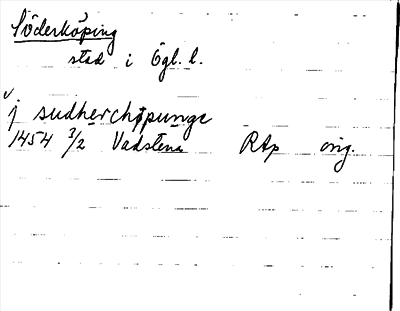 Söderköping
stad i Ögl. l.
j sudherchøpunge
1454 3/2 Vadstena RAp orig.